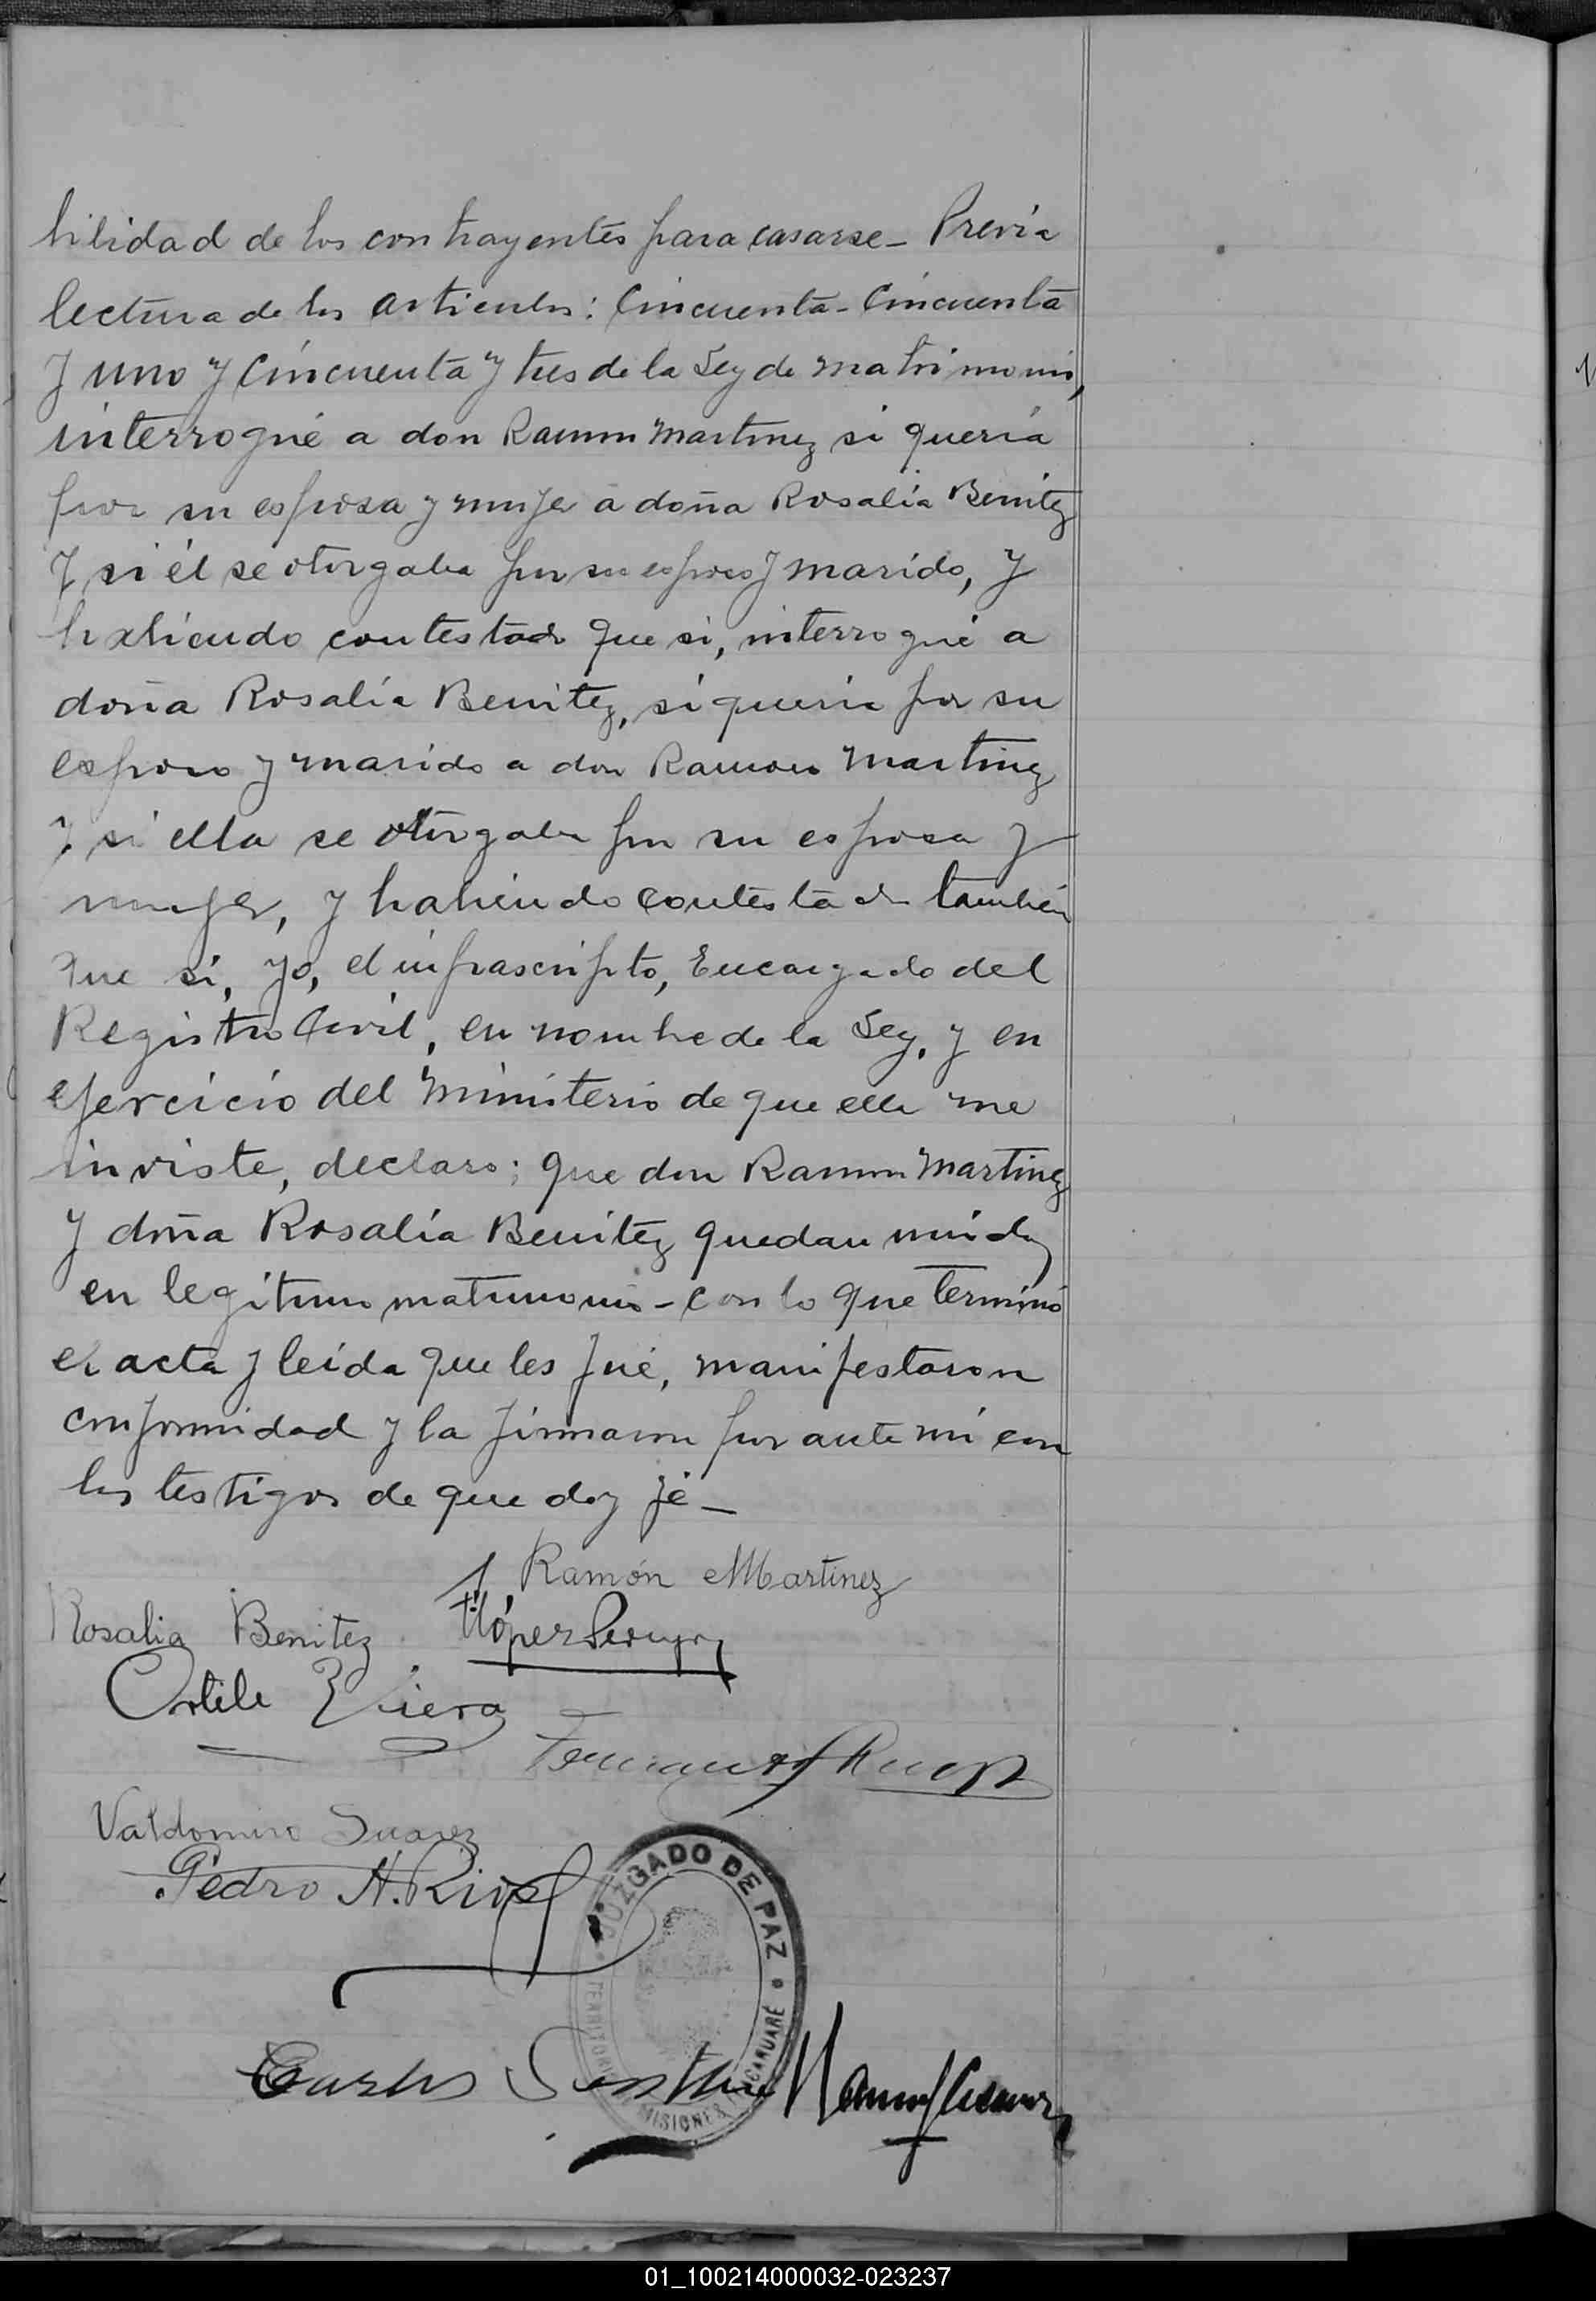 bilidad de los contrayentes para casarse_ Previa
lectura de los articulos: Cincuenta - Cincuenta
y uno y Cincuenta y tres de la Ley de matrimonio,
interrogué a don Ramon Martinez si quería
por su esposa y mujer a doña Rosalía Benitez
y si él se otorgaba por su esposo y marido, y
habiendo contestado que si, interrogué a
doña Rosalía Benitez, si quería por su
esposo y marido a don Ramon Martinez
y si ella se otorgaba por su esposa y
mujer, y habiendo contestado también
que si, yo, el infrascripto, Encargado del
Registro Civil, en nombre de la Ley, y en
ejercicio del ministerio de que ella me
inviste, declaro; que don Ramon Martinez
y doña Rosalía Benitez quedan unidos
en legitimo matrimonio - con lo que terminó
el acta y leida que les fué, manifestaron
conformidad y la firmaron por ante mi con
los testigos de que doy fé_
Ramón Martinez
Rosalia Benitez
Viera
Valdomiro Suarez
Pedro A. Rios
JUZGADO DE PAZ
TERRITORIO MISIONES
Carlos
01_100214000032-023237